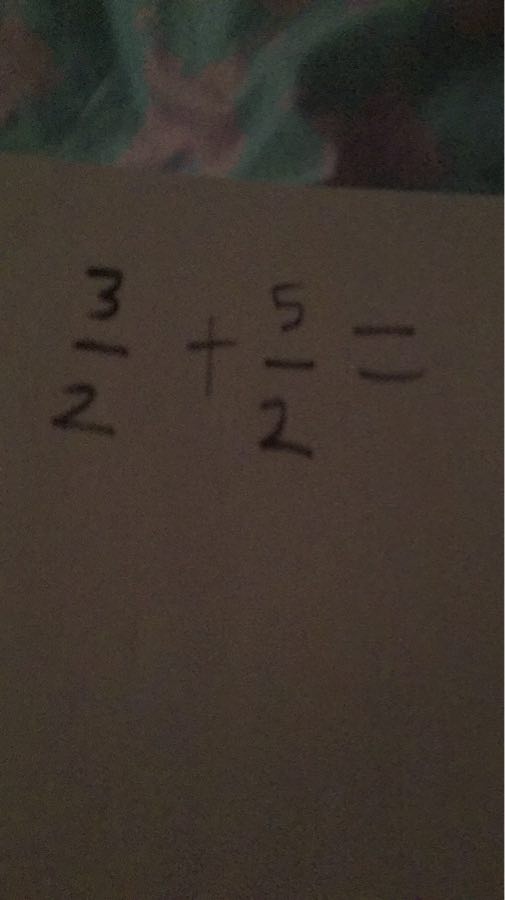 3/2 + 5/2 =